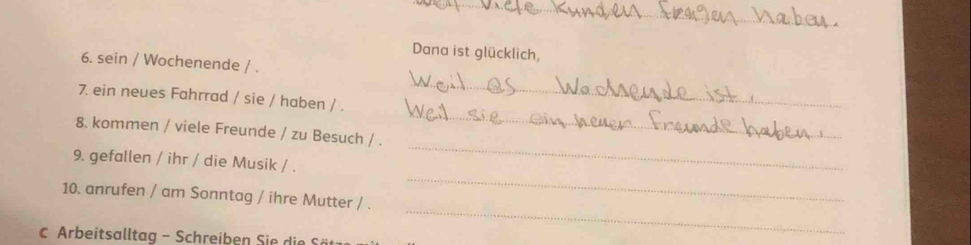 weil viele Kunden fragen haben.
Dana ist glücklich,
6. sein / Wochenende / .
weil es Wochende ist.
7. ein neues Fahrrad / sie / haben / .
weil sie ein neuer freunde haben.
8. kommen / viele Freunde / zu Besuch / .
9. gefallen / ihr / die Musik / .
10. anrufen / am Sonntag / ihre Mutter / .
C Arbeitsalltag – Schreiben Sie die